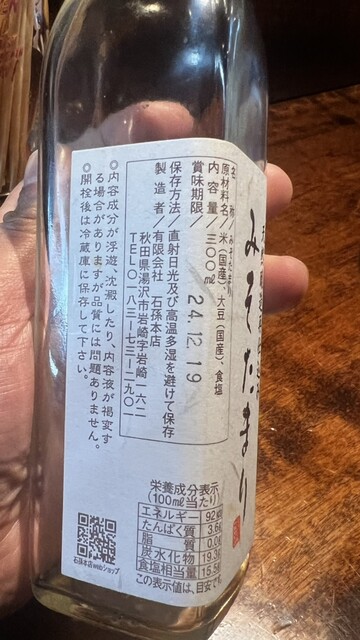 みそたまり
名 称／みそたまり
原材料名／米(国産)、大豆(国産)、食塩
内容量／三〇〇㎖
賞味期限／ 24.12.19
保存方法／直射日光及び高温多湿を避けて保存
製造者／有限会社 石孫本店
秋田県湯沢市岩崎字岩崎一六二
TEL〇一八三ー七三ー二九〇一
◎内容成分が浮遊、沈澱したり、内容液が褐変す
る場合がありますが品質には問題ありません。
◎開栓後は冷蔵庫に保存して下さい。
栄養成分表示
(100㎖当たり)
エネルギー 92
たんぱく質 3.6g
脂質 0.0g
炭水化物 19.3g
食塩相当量 15.5g
この表示値は、目安です
石孫本店webショップ